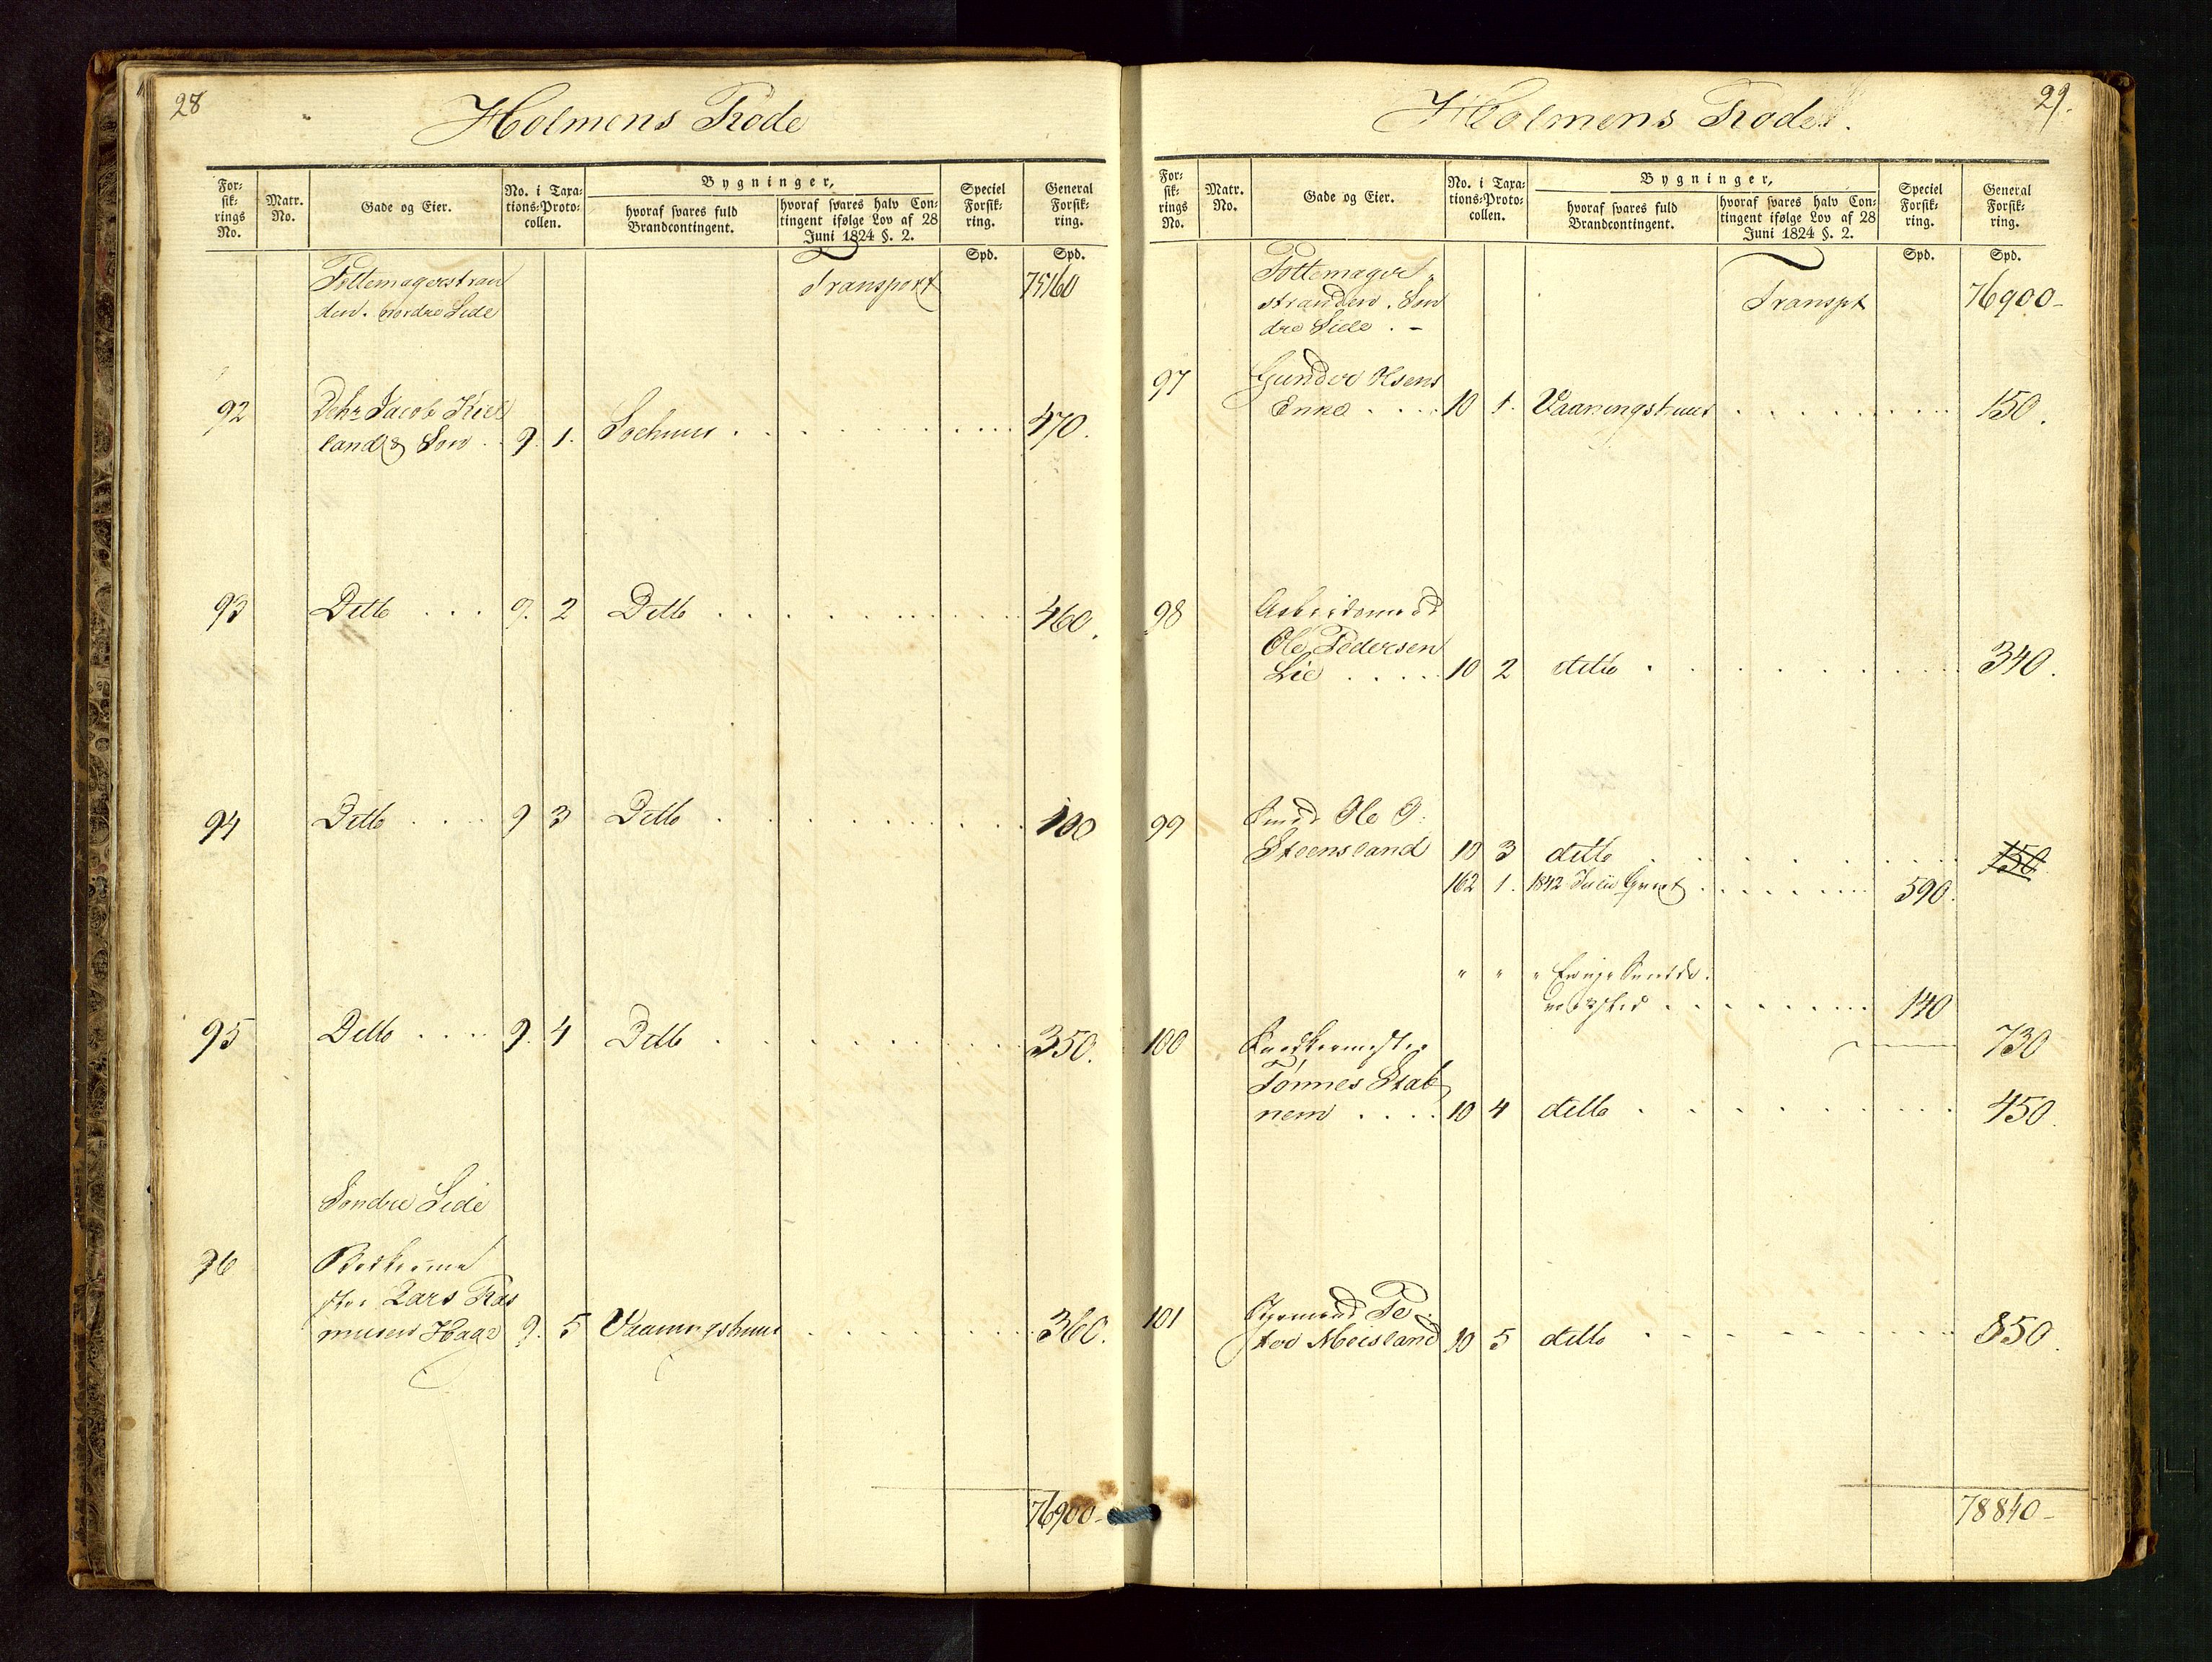 28
Holmens Rode
For-
sik-
rings
No.
Matr.
No.
Gade og Eier.
No. i Taxa-
tions-Proto-
collen.
Bygninger,
hvoraf svares fuld
Brandcontingent.
hvoraf svares halv Con-
tingent ifølge Lov af 28
Juni 1824 §. 2.
Speciel
Forsik-
ring.
General
Forsik-
ring.
Spd. Spd.
Pottemagerstran
den. nordre Side
Transport 75160
92 Dehr. Jacob Kiel
land & Søn . 9. 1. Søehuus . . . . 470.
93 Ditto . . . 9. 2 Ditto . . . . 460.
94 Ditto . . . 9 3 Ditto . . . . 100
95 Ditto . . . 9. 4 Ditto . . . . 350.
Søndre Side
96
Lars Ras
musen Hage 9. 5 Vaaningshuus . . . . 360.
76900-
29.
Holmens Rode.
For-
sik-
rings
No.
Matr.
No.
Gade og Eier.
No. i Taxa-
tions-Proto-
collen.
Bygninger,
hvoraf svares fuld
Brandcontingent.
hvoraf svares halv Con-
tingent ifølge Lov af 28
Juni 1824 §. 2.
Speciel
Forsik-
ring.
General
Forsik-
ring.
Spd. Spd.
Pottemager-
stranden. Søn
dre Side . -
Transpt 76900-
97 Gunder Olsens
Enke . . . . 10 1. Vaaningshuus . . . . 150.
98 Arbeidsmand
Ole Pedersen
Lie . . . . 10 2 ditto . . . . 340.
99 Smed Ole P.
Steensland 10 3 ditto . . . . 150
162 1. 1842 . . . . 590.
" " "
. . . . 140
730
100
Tønnes Stab
nem . . . . 10 4 ditto . . . . 450.
101 Styrmand Pe
ter Moisland 10 5 ditto . . . . 850.
78840-